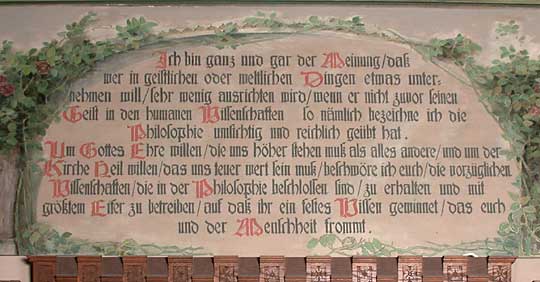 Ich bin ganz und gar der Meinung/daß
wer in geistlichen oder weltlichen Dingen etwas unter-
nehmen will/sehr wenig ausrichten wird/wenn er nicht zuvor seinen
Geist in den humanen Wissenschaften so nämlich bezeichne ich die
Philosophie umsichtig und reichlich geübt hat.
Um Gottes Ehre willen/die uns höher stehen muß als alles andere/und um der
Kirche Heil willen/das uns teuer wert sein muß/beschwöre ich euch/die vorzüglichen
Wissenschaften/die in der Philosophie beschlossen sind/zu erhalten und mit
größtem Eifer zu betreiben/auf daß ihr ein festes Wissen gewinnet/das euch
und der Menschheit frommt.